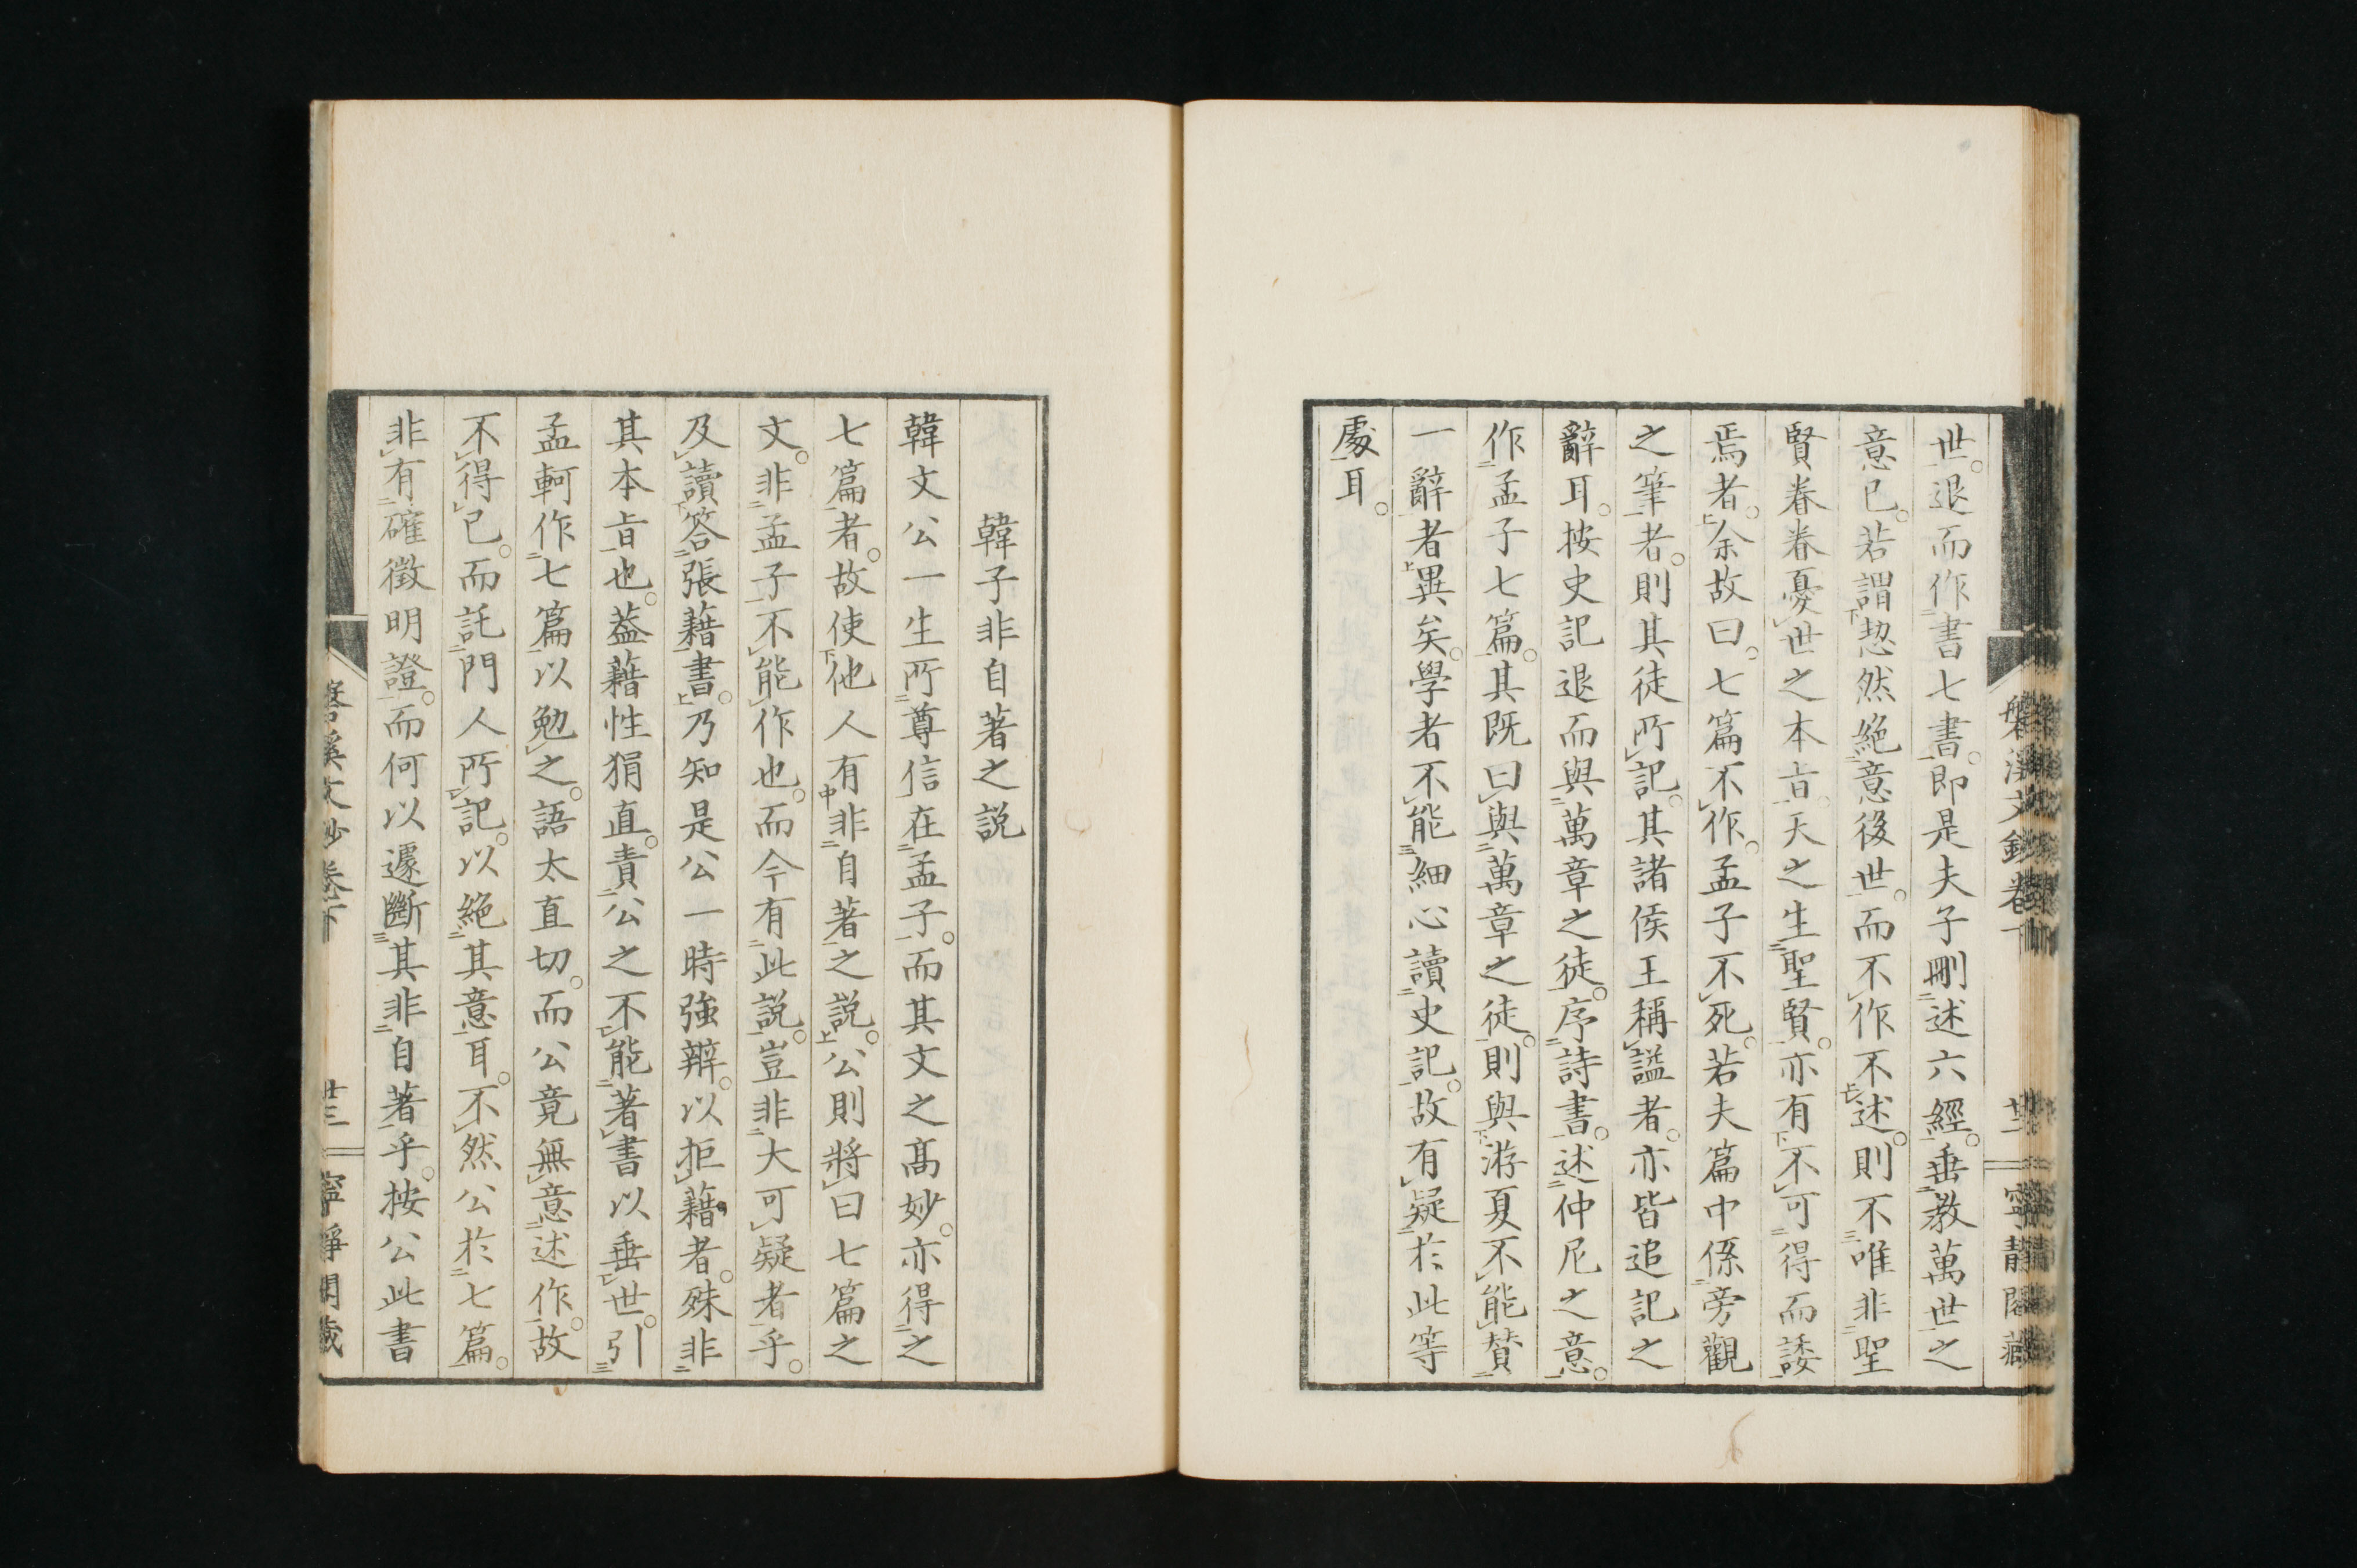 世。退而作書七書。即是夫子刪述六經。垂教萬世之
意已。若謂恝然絕意後世。而不作不述。則不唯非聖
賢眷眷憂世之本旨。天之生聖賢。亦有不可得而諉
焉者。余故曰。七篇不作。孟子不死。若夫篇中係旁觀
之筆者。則其徒所記。其諸侯王稱謚者。亦皆追記之
辭耳。按史記退而與萬章之徒。序詩書。述仲尼之意。
作孟子七篇。其既曰與萬章之徒。則與游夏不能賛
一辭者異矣。學者不能細心讀史記。故有疑於此等
處耳。
韓子非自著之説
韓文公一生所尊信在孟子。而其文之髙妙。亦得之
七篇者。故使他人有非自著之説。公則將曰七篇之
文。非孟子不能作也。而今有此説。豈非大可疑者乎。
及讀答張藉書。乃知是公一時強辨。以拒藉者。殊非
其本旨也。葢藉性狷直。責公之不能著書以垂世。引
孟軻作七篇以勉之。語太直切。而公竟無意述作。故
不得已。而託門人所記。以絕其意耳。不然公於七篇。
非有確徴明證。而何以遽斷其非自著乎。按公此書
磐溪文鈔卷下
廿三
寧靜閣藏